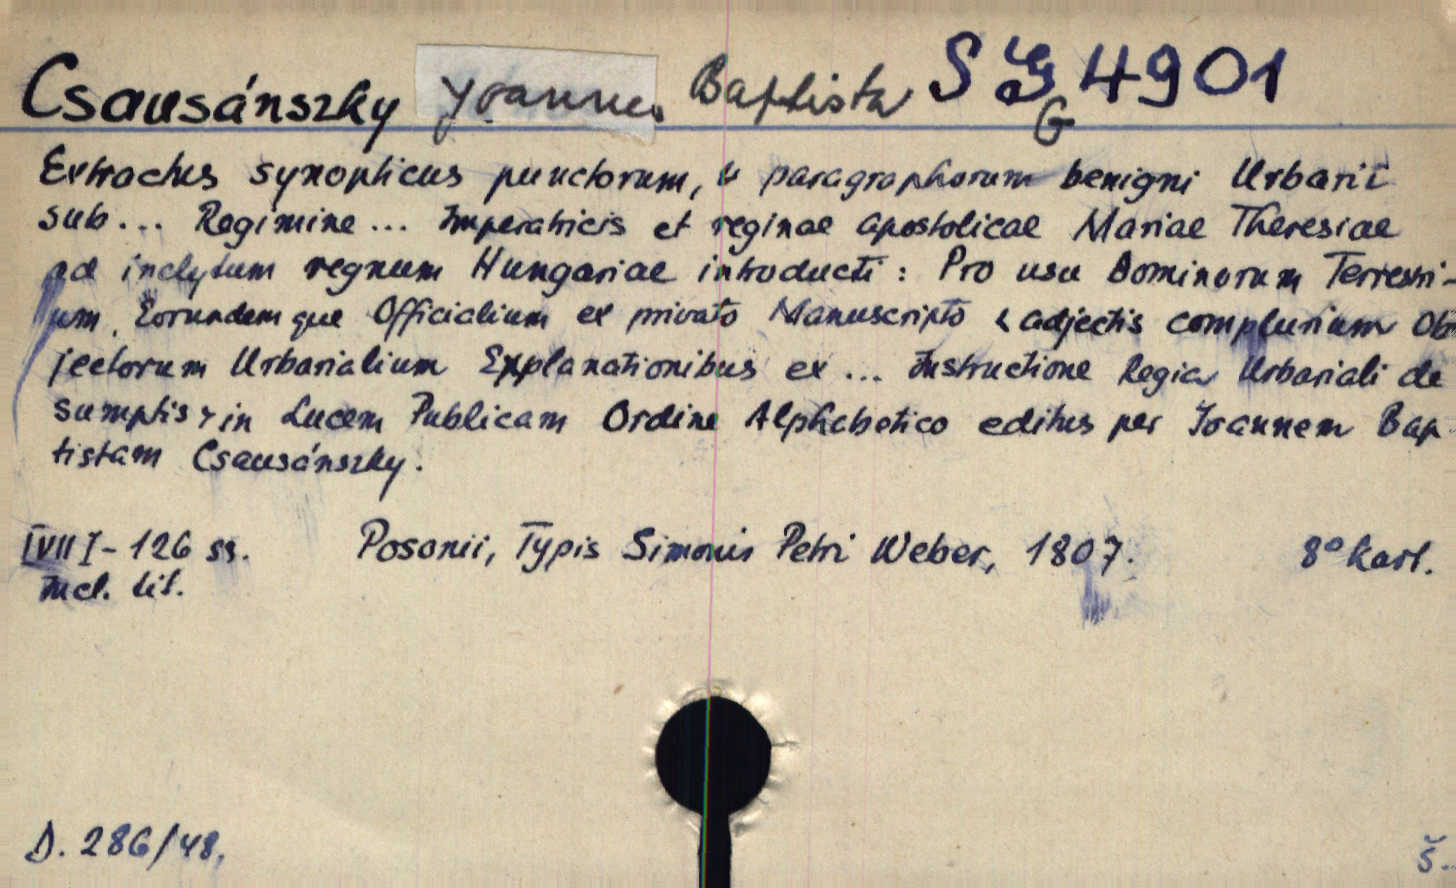 Csausánszky Joannes Baptista SG 4901
G
Extractus synopticus punctorum, & paragraphorum benigni Urbarii
sub... Regimine... Imperatricis et reginae apostolicae Mariae Theresiae
ad inclytum regnum Hungariae introducti: Pro usu Dominorum Terrestri-
um, Eorundemque Officialium ex privato Manuscripto & adjectis complurium Ob
jectorum Urbarialium Explanationibus ex... Instructione Regia Urbariali de
sumptis & in Lucem Publicam Ordine Alphabetico editus per Joannem Bap
tistam Csausánszky.
[VII]-126 ss. Posonii, Typis Simonis Petri Weber, 1807. 8° kart.
Incl. tit.
D. 286/48.
Š.